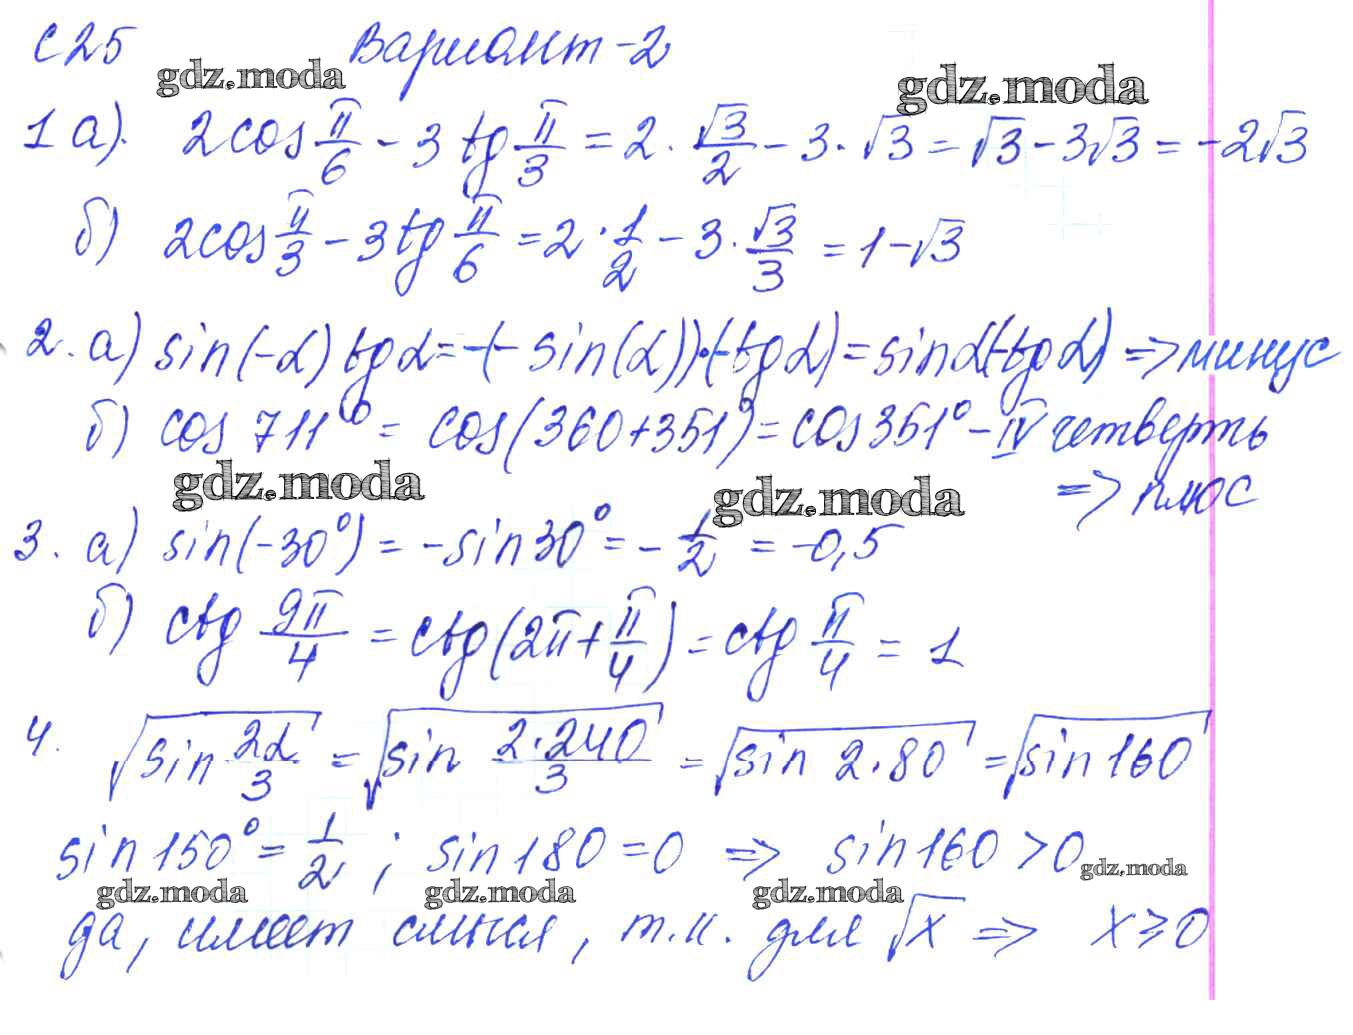 С25 Вариант-2
gdz.moda gdz.moda
1 а). 2cos π/6 - 3 tg π/3 = 2 · √3/2 - 3 · √3 = √3 - 3√3 = -2√3
б) 2cos π/3 - 3 tg π/6 = 2 · 1/2 - 3 · √3/3 = 1 - √3
2. а) sin(-α) tgα = -(- sin(α))·(-tgα) = sinα(-tgα) => минус
б) cos 711° = cos(360+351°) = cos351° - IV четверть
gdz.moda gdz.moda => плюс
3. а) sin(-30°) = -sin30° = -1/2 = -0,5
б) ctg 9π/4 = ctg(2π + π/4) = ctg π/4 = 1
4. √(sin 2α/3) = √(sin 2·240/3) = √(sin 2·80) = √(sin160)
sin150° = 1/2 ; sin180 = 0 => sin160 > 0 gdz.moda
gdz.moda gdz.moda gdz.moda
да, имеет смысл, т.к. для √x => x ≥ 0